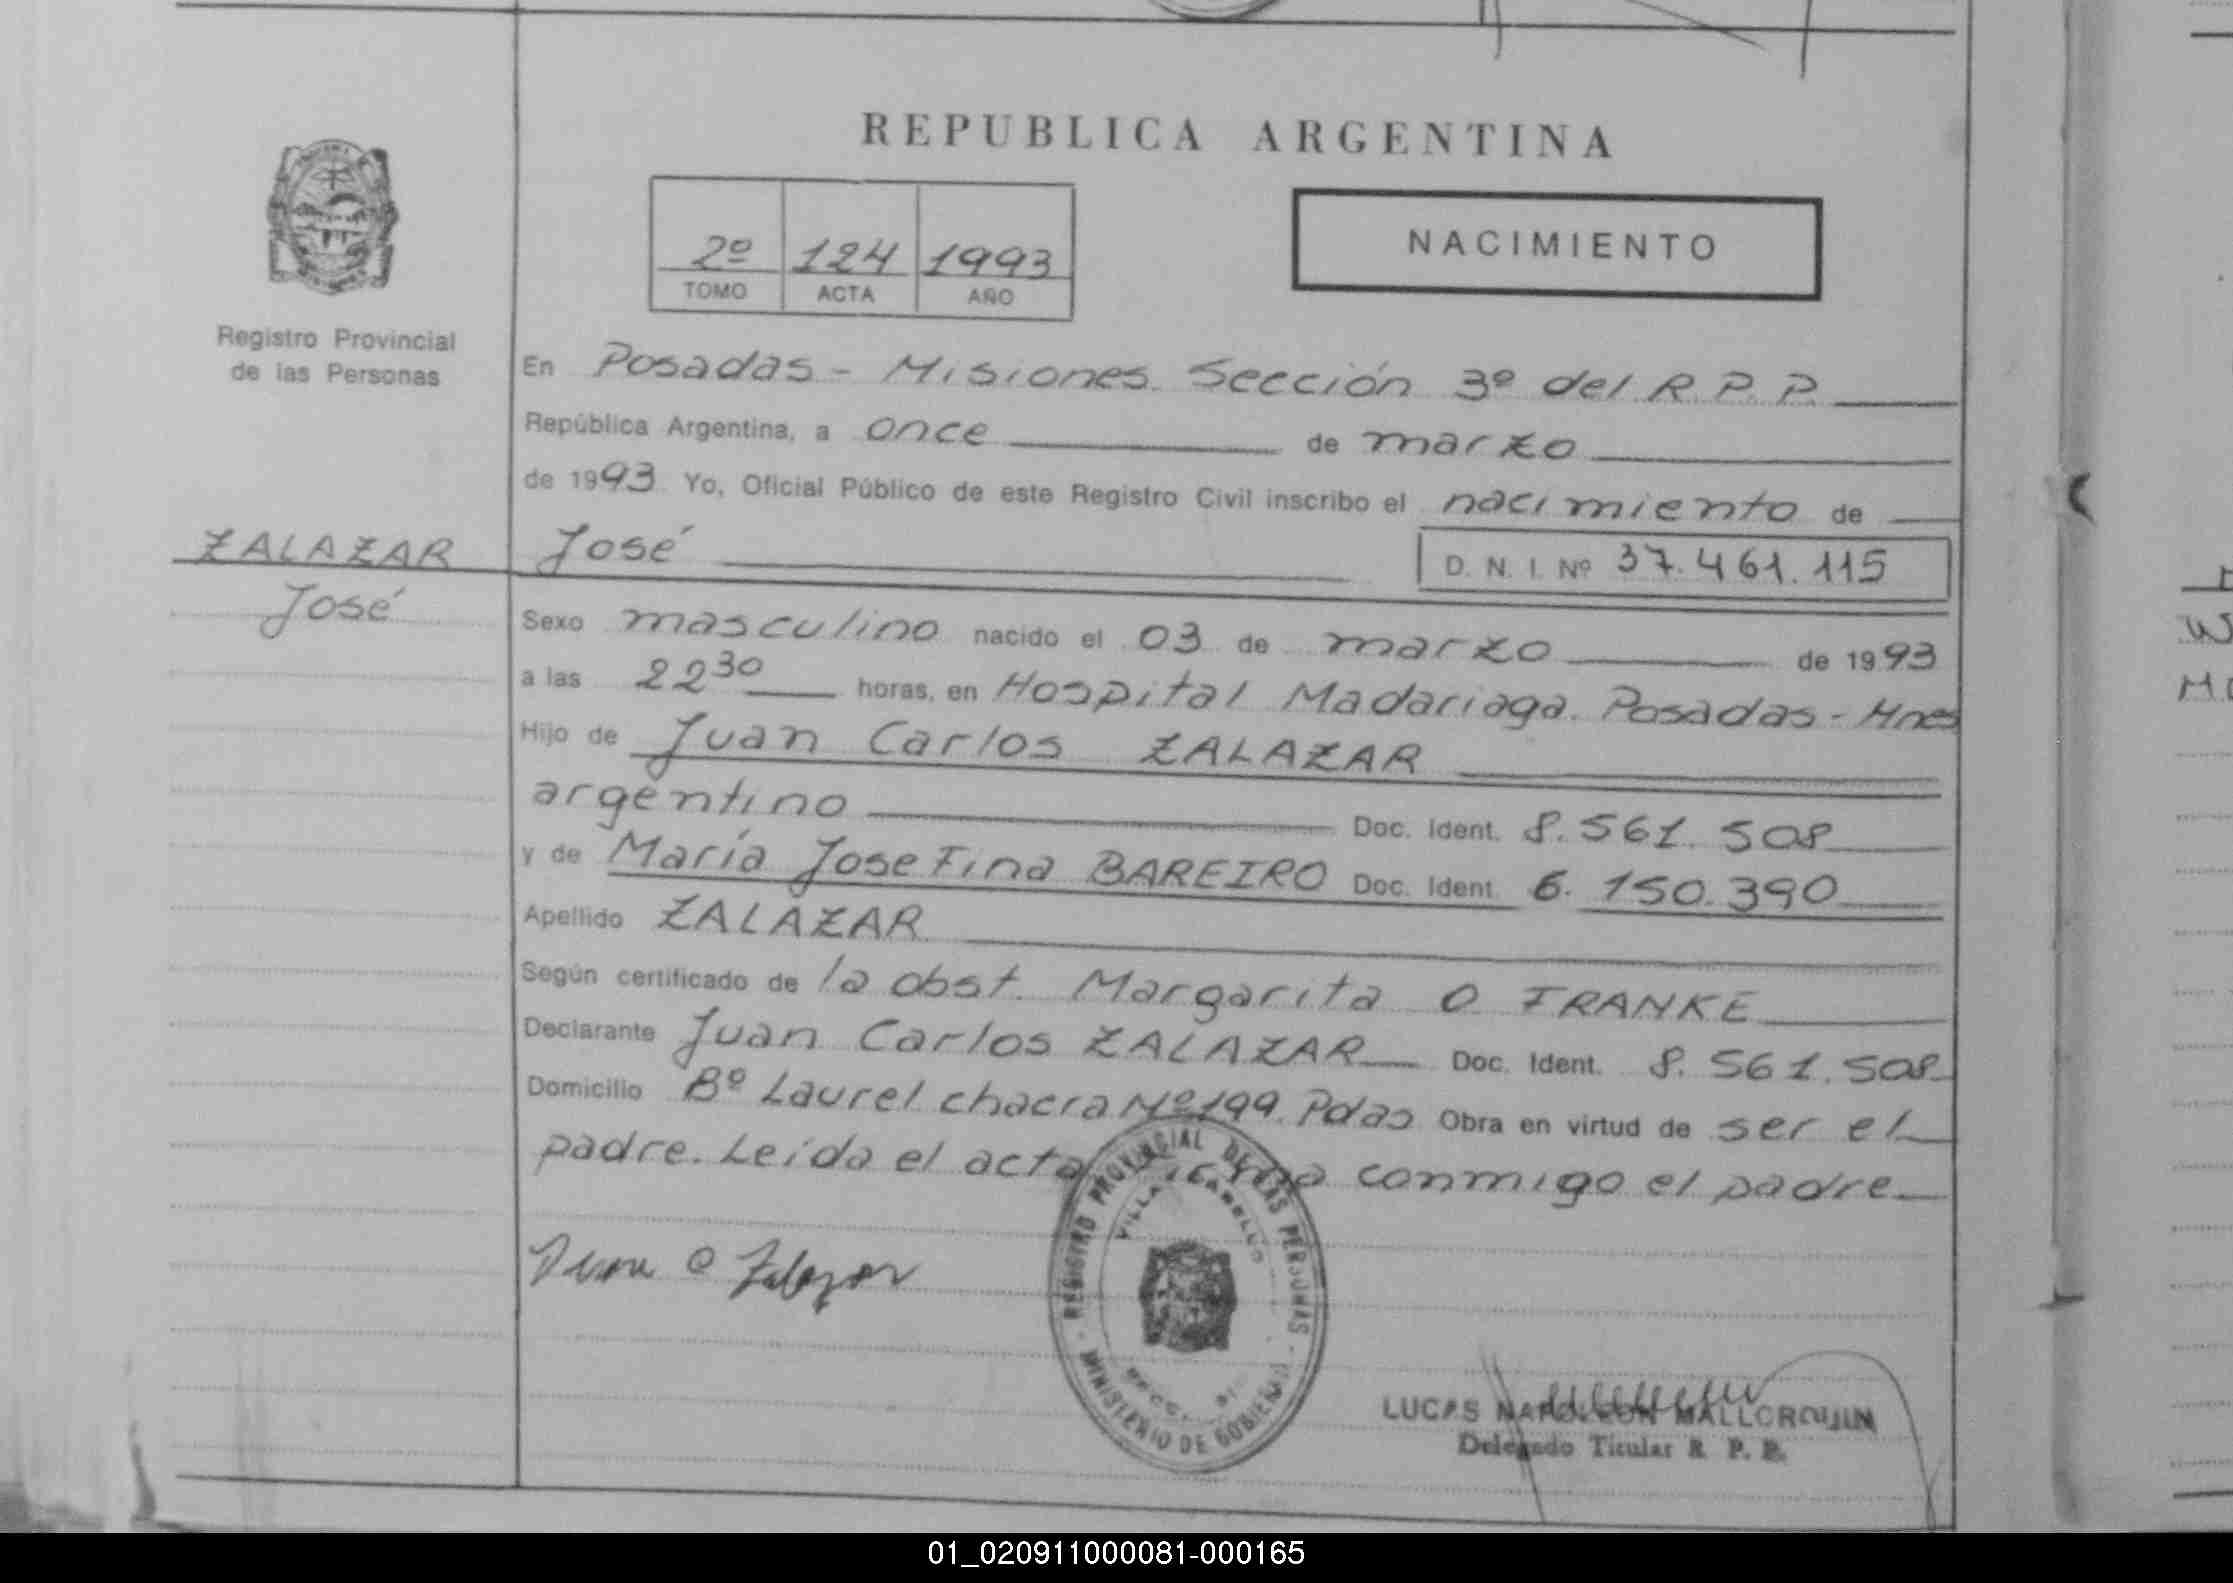 REPUBLICA ARGENTINA
2º 124 1993
TOMO ACTA AÑO
NACIMIENTO
Registro Provincial
de las Personas
En Posadas - Misiones. Sección 3º del R. P. P.
República Argentina, a once de marzo
de 1993 Yo, Oficial Público de este Registro Civil inscribo el nacimiento de
ZALAZAR
José
José
D. N. I. Nº 37.461.115
Sexo masculino nacido el 03 de marzo de 1993
a las 22 30 horas, en Hospital Madariaga. Posadas - Mnes
Hijo de Juan Carlos ZALAZAR
argentino Doc. Ident. 8.561.508
y de María Josefina BAREIRO Doc. Ident. 6.150.390
Apellido ZALAZAR
Según certificado de la obst. Margarita O FRANKE
Declarante Juan Carlos ZALAZAR Doc. Ident. 8.561.508
Domicilio Bº Laurel chacra Nº 199. Pdas Obra en virtud de ser el
padre. Leída el acta conmigo el padre
REGISTRO PROVINCIAL DE LAS PERSONAS
VILLA CABELLO
MINISTERIO DE GOBIERNO
Juan C Zalazar
LUCAS NAPOLEON MALLORQUIN
Delegado Titular R. P. P.
01_020911000081-000165